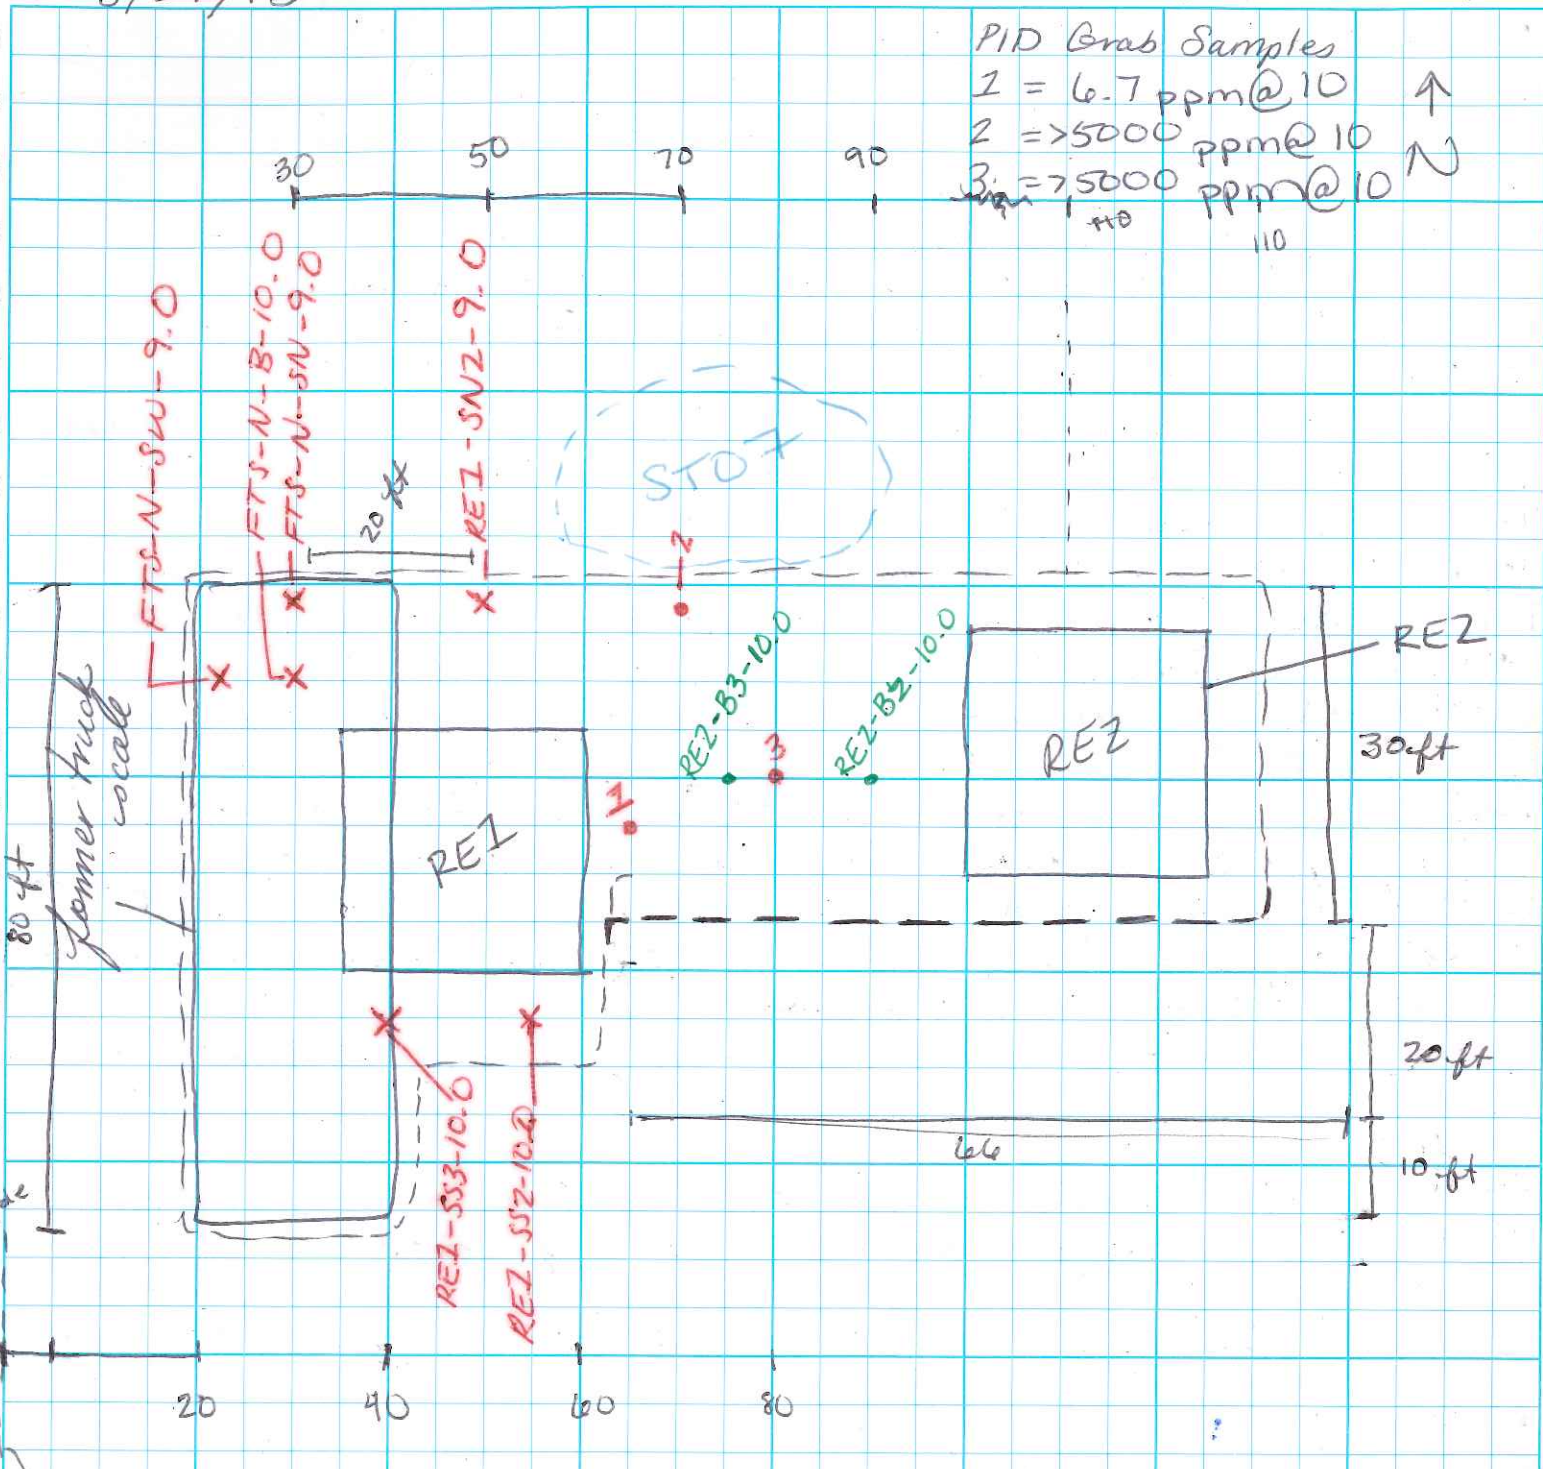 PID Grab Samples
1 = 6.7 ppm@10
2 = >5000 ppm@ 10
3 = >5000 ppm@10
N
30
50
70
90
110
110
FTS-N-SW-9.0
FTS-N-B-10.0
FTS-N-SN-9.0
RE1-SN2-9.0
20 ft
ST07
2
RE2-B3-10.0
3
RE2-B2-10.0
RE2
RE2
30 ft
1
RE1
former truck
scale
80 ft
20 ft
66
10 ft
RE1-SS3-10.0
RE1-SS2-10.0
20
40
60
80